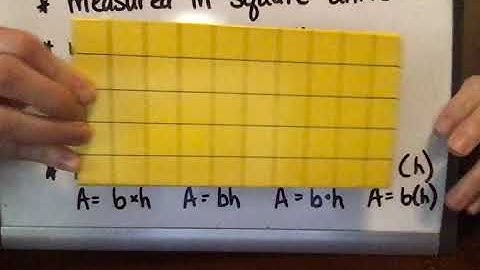 * measured in square units
*
* (h)
A= b×h A= bh A= b•h A= b(h)